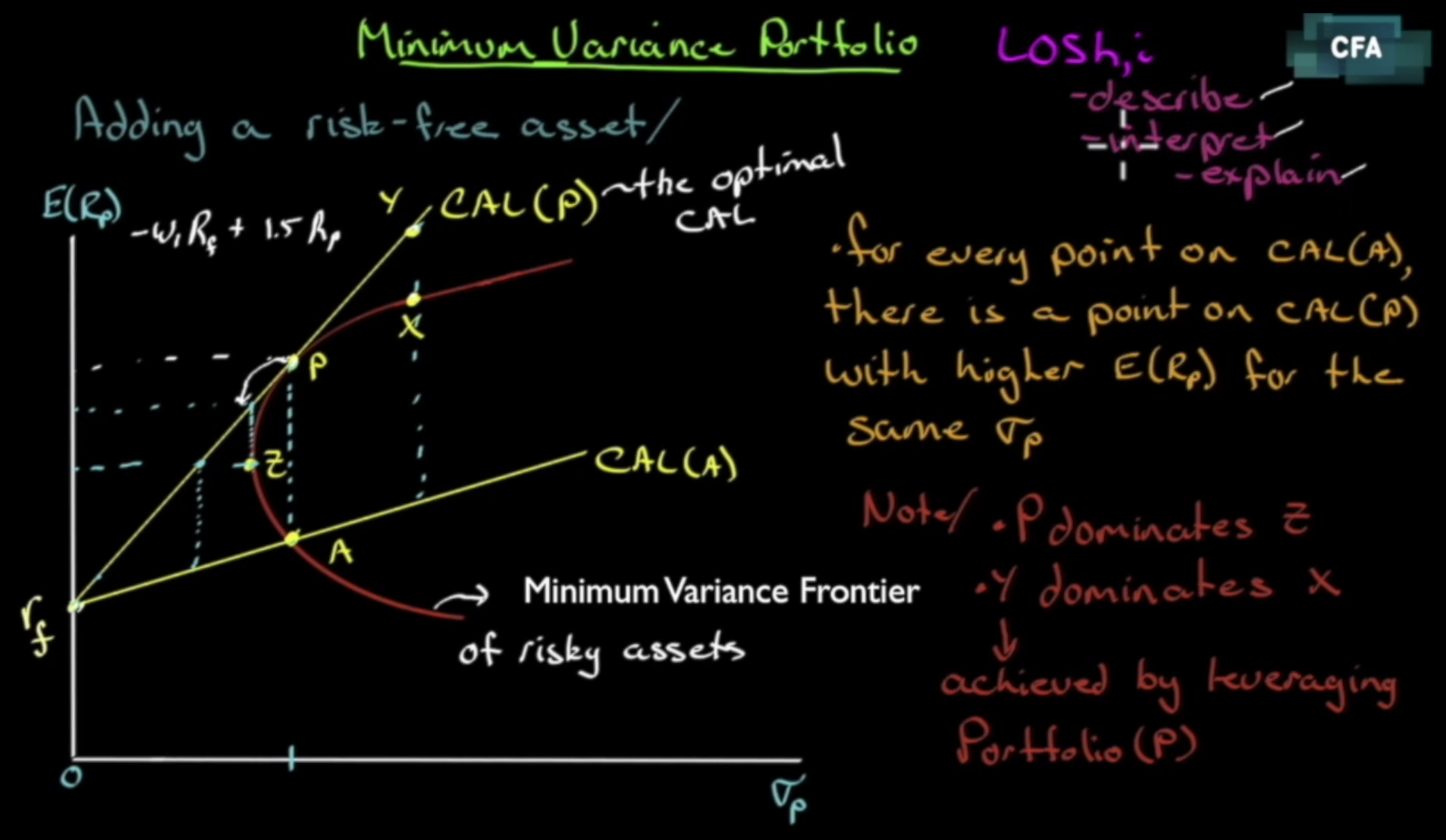 Minimum Variance Portfolio
LOS h, i
CFA
-describe
-interpret
-explain
Adding a risk-free asset/
E(Rp)
-w₁Rf + 1.5 Rp
Y
CAL(P) ~the optimal
CAL
X
P
Z
CAL(A)
A
rf
→ Minimum Variance Frontier
of risky assets
0
σp
·for every point on CAL(A),
there is a point on CAL(P)
with higher E(Rp) for the
same σp
Note/ ·P dominates Z
·Y dominates X
↓
achieved by leveraging
Portfolio(P)